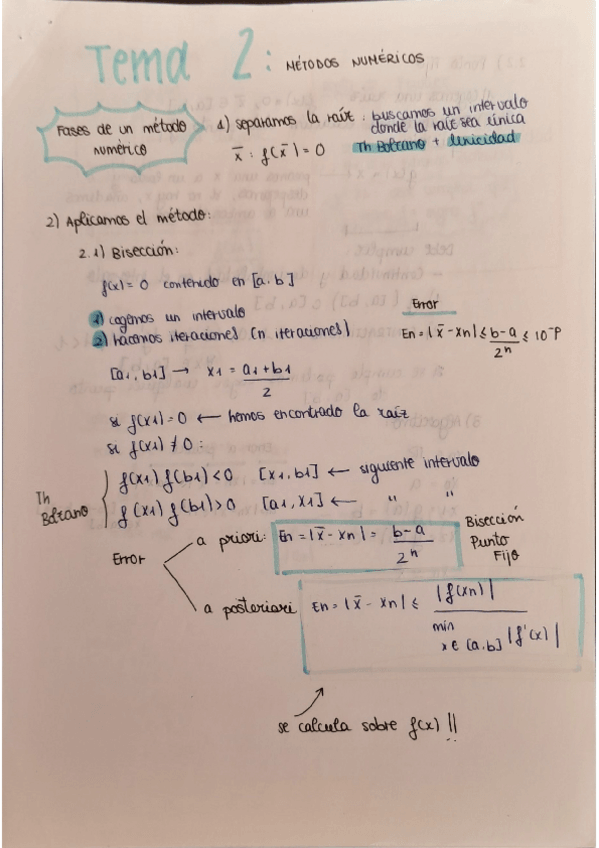 Tema 2: MÉTODOS NUMÉRICOS
Fases de un método
numérico
1) separamos la raíz: buscamos un intervalo
donde la raíz sea única
x̄ : f(x̄) = 0 Th Bolzano + Unicidad
2) Aplicamos el método:
2.1) Bisección:
f(x) = 0 contenido en [a,b]
1) cogemos un intervalo
2) hacemos iteraciones (n iteraciones)
Error
En = |x̄ - xn| ≤ b-a / 2^n ≤ 10^-p
[a1, b1] → x1 = a1 + b1 / 2
si f(x1) = 0 ← hemos encontrado la raíz
si f(x1) ≠ 0:
Th
Bolzano
f(x1) f(b1) < 0 [x1, b1] ← siguiente intervalo
f(x1) f(b1) > 0 [a1, x1] ← " "
Error
a priori: En = |x̄ - xn| = b-a / 2^n
Bisección
Punto
Fijo
a posteriari En = |x̄ - xn| ≤ |f(xn)| / min x∈[a,b] |f'(x)|
se calcula sobre f(x) !!